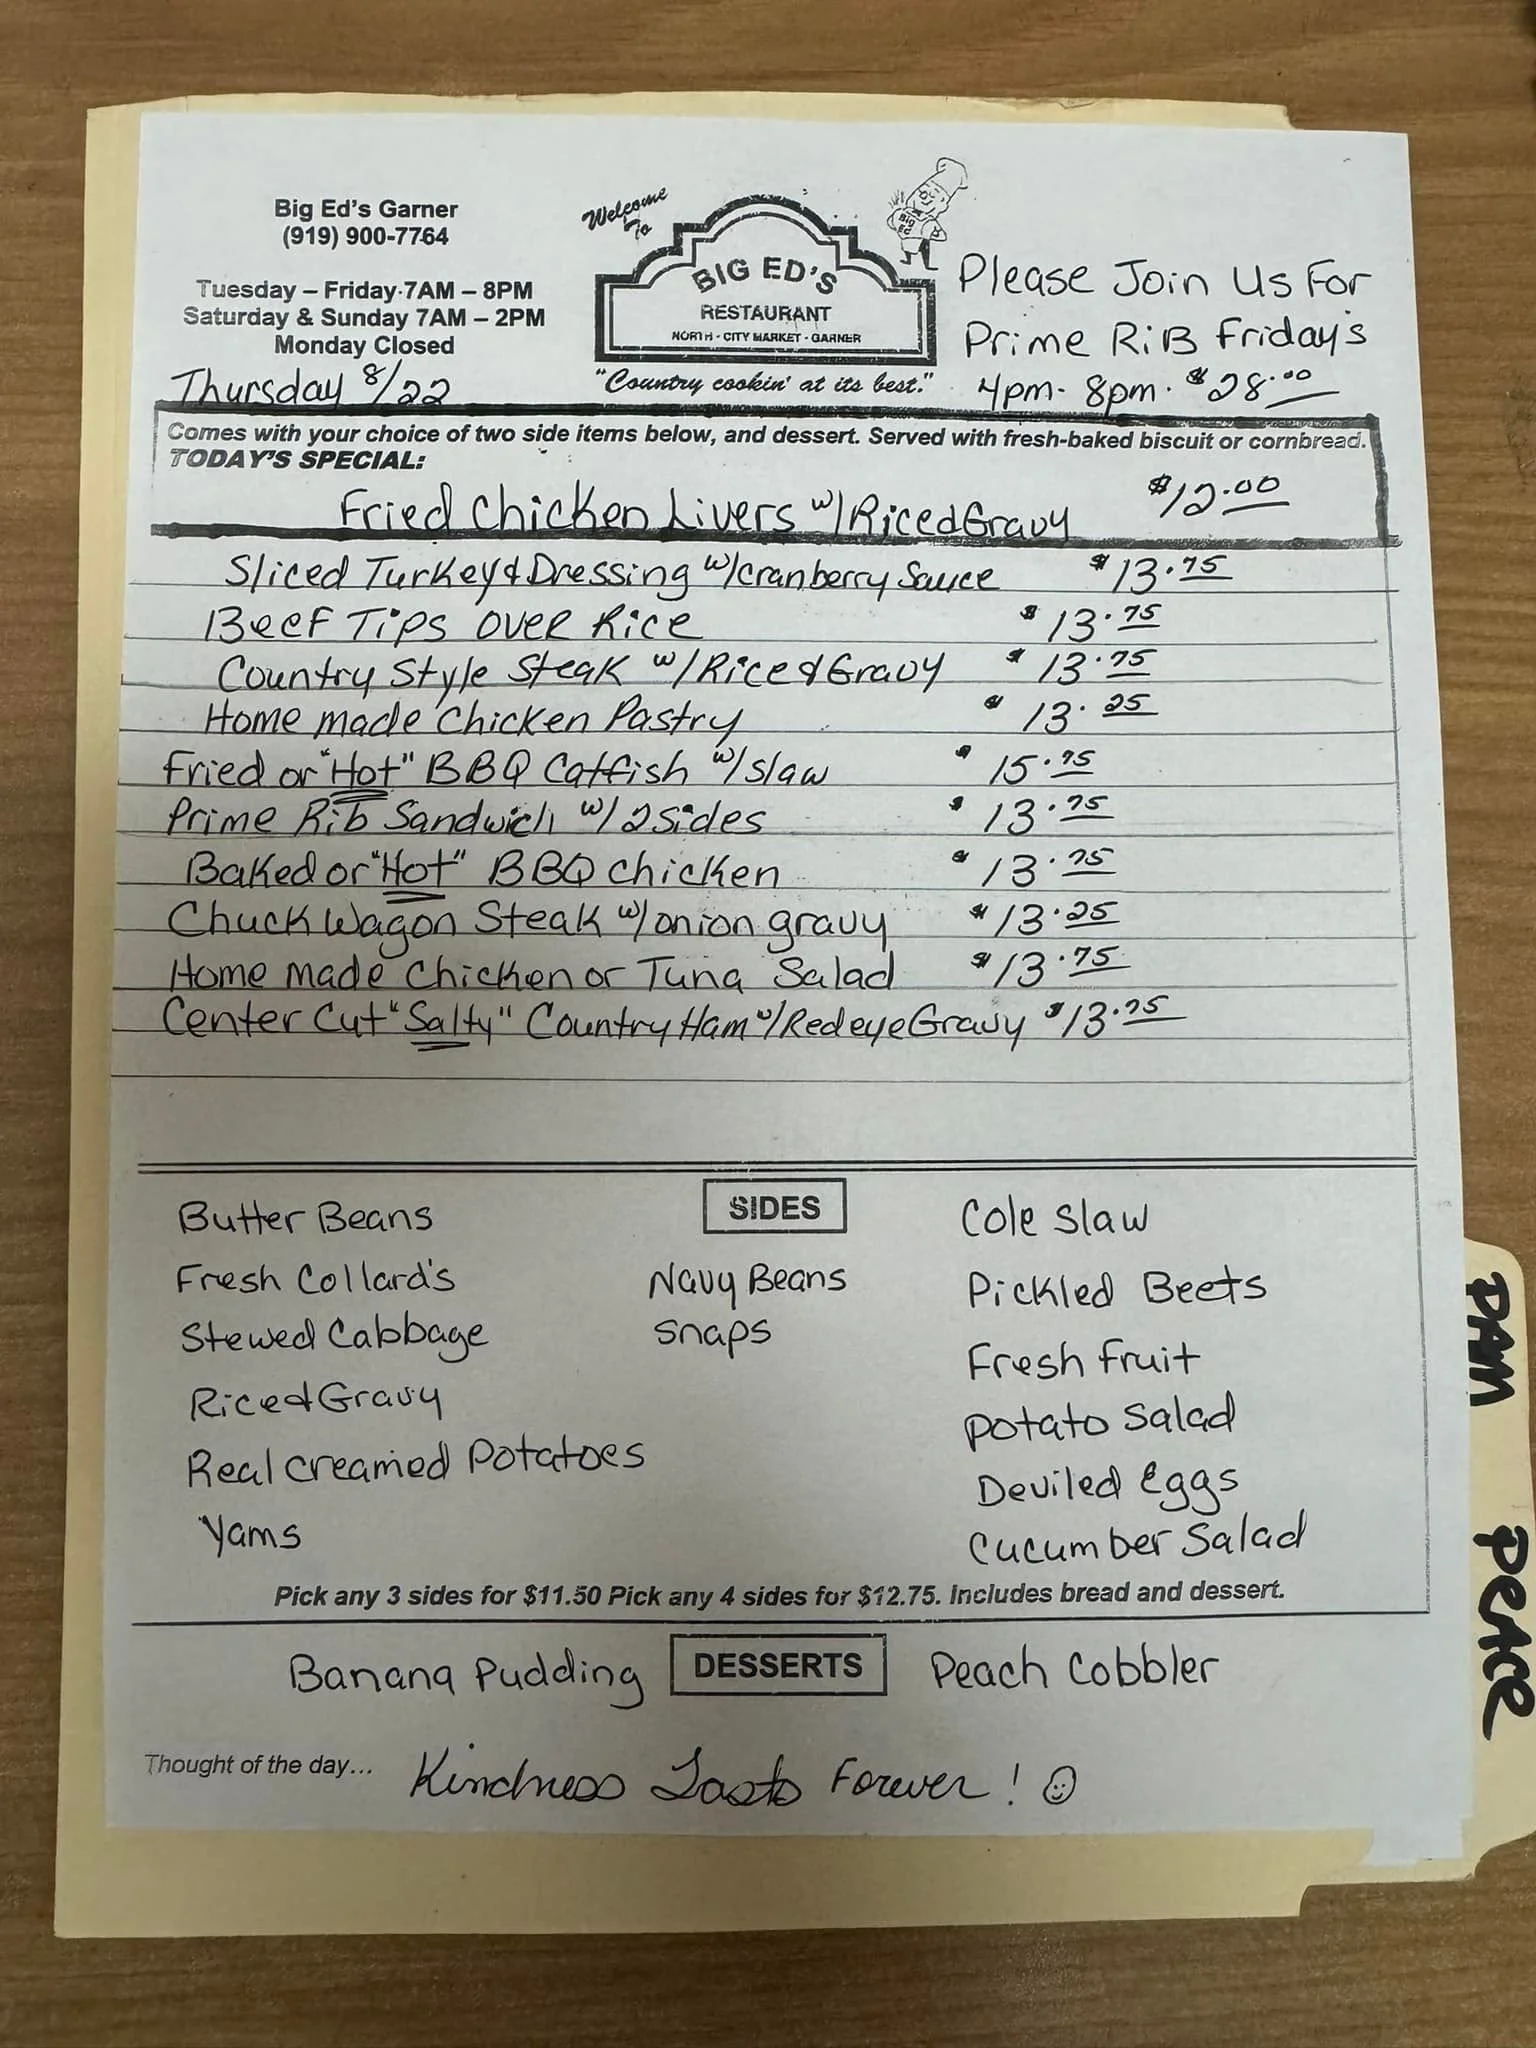 Big Ed's Garner
(919) 900-7764
Tuesday – Friday 7AM – 8PM
Saturday & Sunday 7AM – 2PM
Monday Closed
Thursday 8/22
Welcome
To
BIG ED'S
RESTAURANT
NORTH - CITY MARKET - GARNER
"Country cookin' at its best."
BIG
ED
Please Join Us For
Prime RiB Friday's
4pm- 8pm. $28.00
Comes with your choice of two side items below, and dessert. Served with fresh-baked biscuit or cornbread.
TODAY'S SPECIAL:
Fried Chicken Livers w/Rice&Gravy $12.00
Sliced Turkey & Dressing w/cranberry Sauce $13.75
Beef Tips over Rice $13.75
Country Style Steak w/Rice & Gravy $13.75
Home made Chicken Pastry $13.25
Fried or "Hot" BBQ Catfish w/slaw $15.75
Prime Rib Sandwich w/2sides $13.75
Baked or "Hot" BBQ chicken $13.75
Chuck Wagon Steak w/onion gravy $13.25
Home made Chicken or Tuna Salad $13.75
Center Cut "Salty" Country Ham w/Redeye Gravy $13.75
SIDES
Butter Beans
Fresh Collard's
Stewed Cabbage
Rice&Gravy
Real creamed Potatoes
Yams
Navy Beans
Snaps
Cole Slaw
Pickled Beets
Fresh fruit
Potato Salad
Deviled Eggs
Cucumber Salad
Pick any 3 sides for $11.50 Pick any 4 sides for $12.75. Includes bread and dessert.
DESSERTS
Banana Pudding
Peach Cobbler
Thought of the day... Kindness Lasts Forever! ☺
PAM PEACE